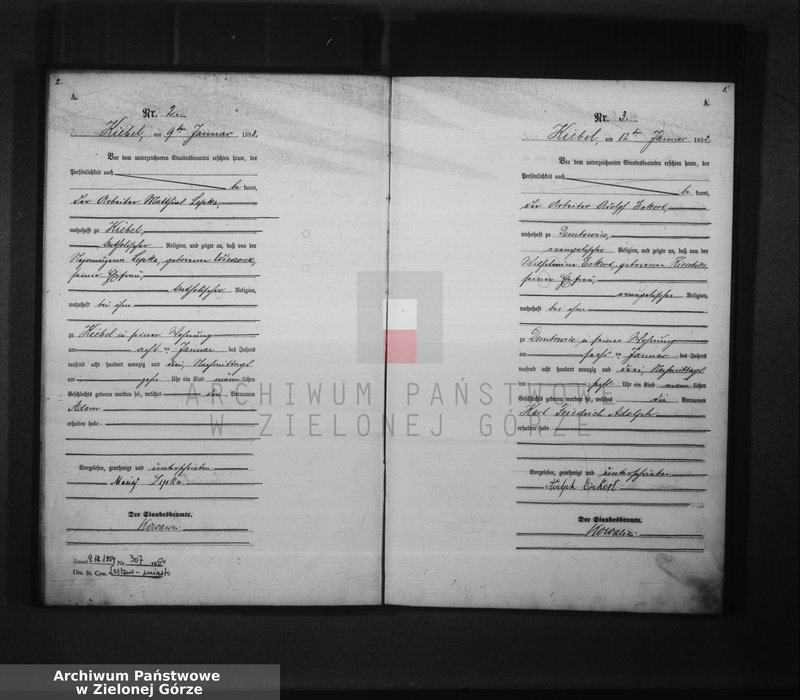 2.
A.
Nr. 2.
Kiebel, am 9ten Januar 1893.
Vor dem unterzeichneten Standesbeamten erschien heute, der
Persönlichkeit nach
be kannt,
der Arbeiter
wohnhaft zu Kiebel,
katholischer Religion, und zeigte an, daß von der
geborenen
seiner Ehefrau,
katholischer Religion,
wohnhaft bei ihm
zu Kiebel in seiner Wohnung
am acht ten Januar des Jahres
tausend acht hundert neunzig und drei, Nachmittags
um Uhr ein Kind männlichen
Geschlechts geboren worden sei, welches den Vornamen
Adam
erhalten habe
Vorgelesen, genehmigt und unterschrieben
Der Standesbeamte.
Zmarł 307
Urz. St. Cyw. Leszno-miasto
A.
Nr. 3.
Kiebel, am 12ten Januar 1893.
Vor dem unterzeichneten Standesbeamten erschien heute, der
Persönlichkeit nach
be kannt,
der Arbeiter Adolph Eckert,
wohnhaft zu
evangelischer Religion, und zeigte an, daß von der
Wilhelmine Eckert, geborenen
seiner Ehefrau,
evangelischer Religion,
wohnhaft bei ihm
zu in seiner Wohnung
am ten Januar des Jahres
tausend acht hundert neunzig und drei, Nachmittags
um Uhr ein Kind männlichen
Geschlechts geboren worden sei, welches die Vornamen
Karl Friedrich Adolph
erhalten habe
Vorgelesen, genehmigt und unterschrieben
Adolph Eckert
Der Standesbeamte.
ARCHIWUM PAŃSTWOWE
W ZIELONEJ GÓRZE
Archiwum Państwowe
w Zielonej Górze